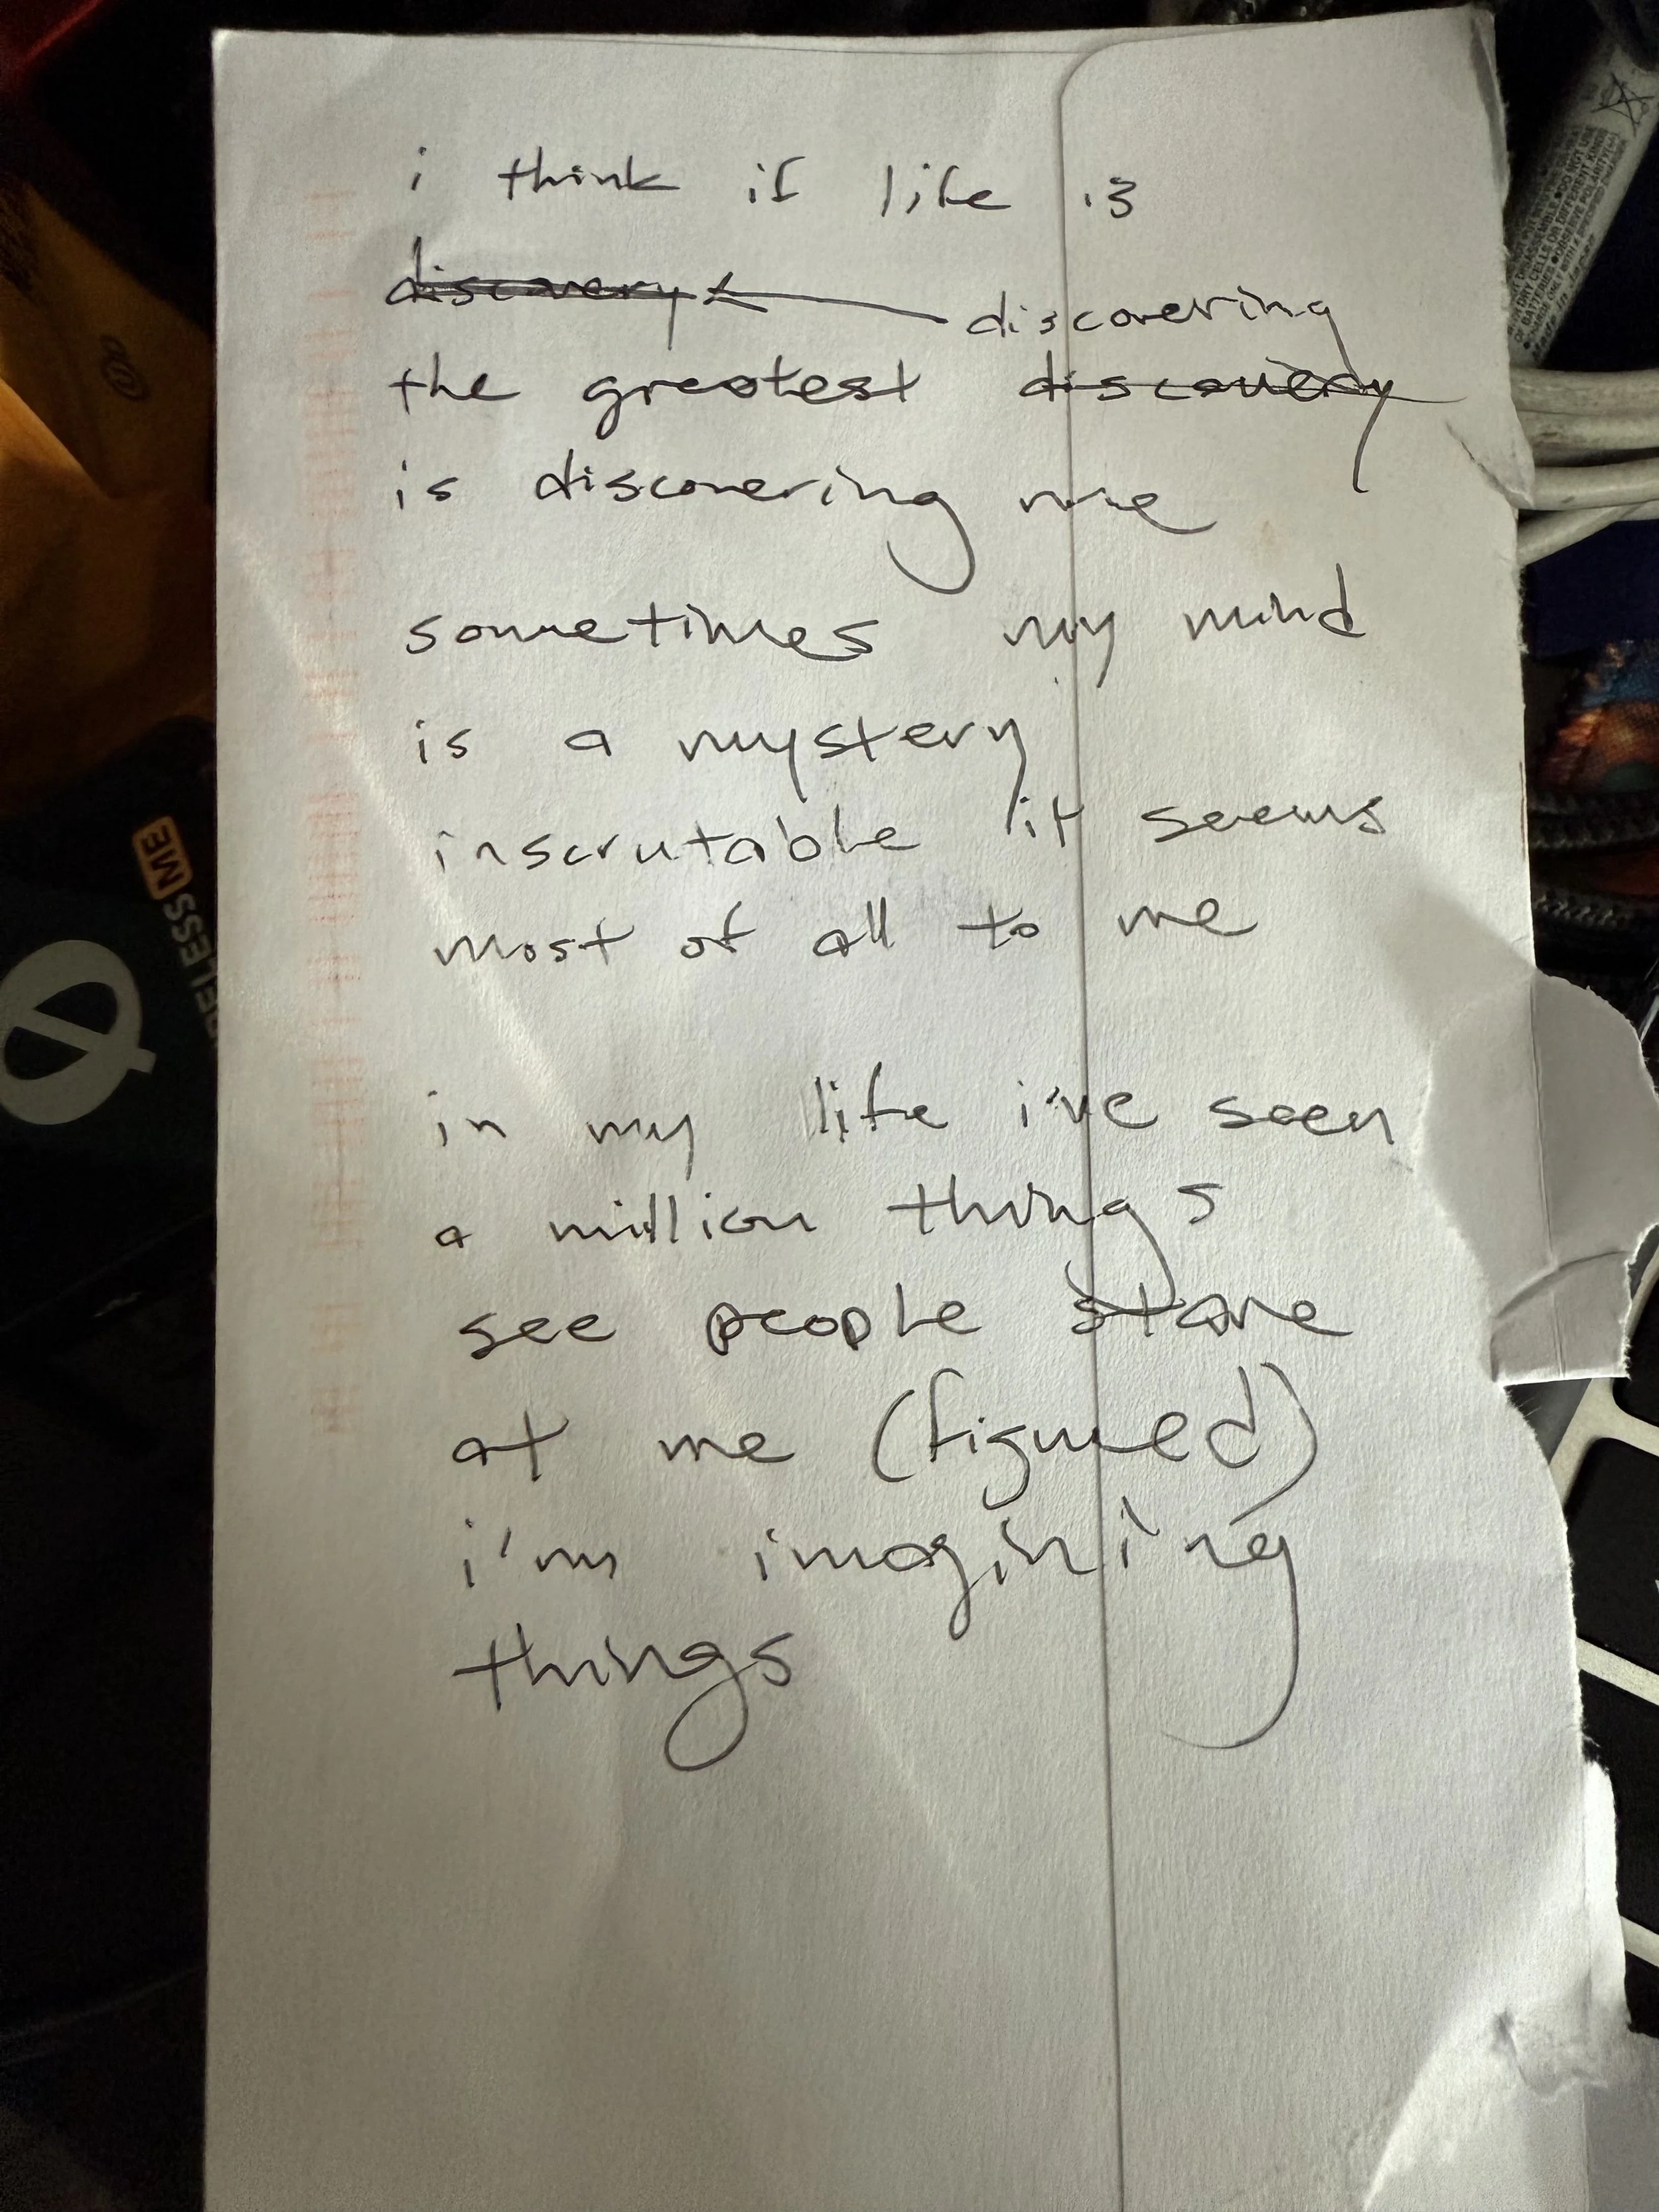 i think if life is
discovery
discovering
the greatest discovery
is discovering me
sometimes my mind
is a mystery
inscrutable it seems
most of all to me
in my life i've seen
a million things
see people stare
at me (figured)
i'm imagining
things
ME